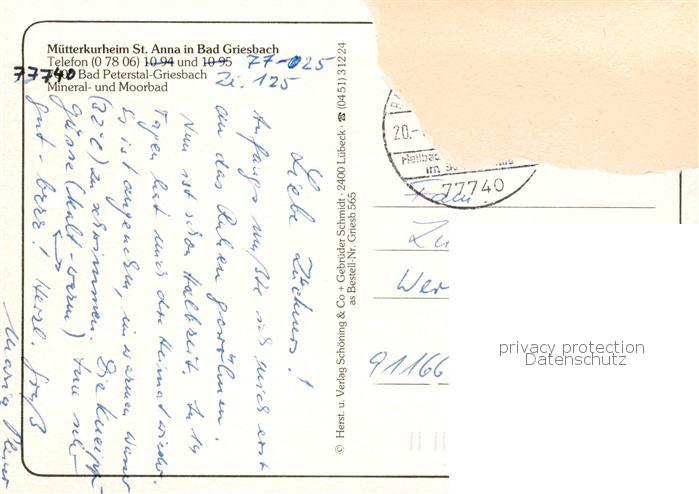 Mütterkurheim St. Anna in Bad Griesbach
Telefon (0 78 06) 10 94 und 10 95 77-025
77740 Bad Peterstal-Griesbach Zi. 125
Mineral- und Moorbad
Liebe
Anfangs mußte ich mich erst
an das Ruhen gewöhnen.
Nun ist schon Halbzeit. In 14
Tagen hat mich die Heimat wieder.
Es ist angenehm, im warmen Wasser
(32°C) zu schwimmen. Die Kneipp-
güsse (kalt-warm) tun sehr
gut - brrr! Herzl. Gruß
Maria
© Herst. u. Verlag Schöning & Co + Gebrüder Schmidt · 2400 Lübeck · ☎ (04 51) 3 12 24
as Bestell-Nr. Griesb 565
20.-
Heilbad
im
77740
Fam.
Wer
91166
privacy protection
Datenschutz